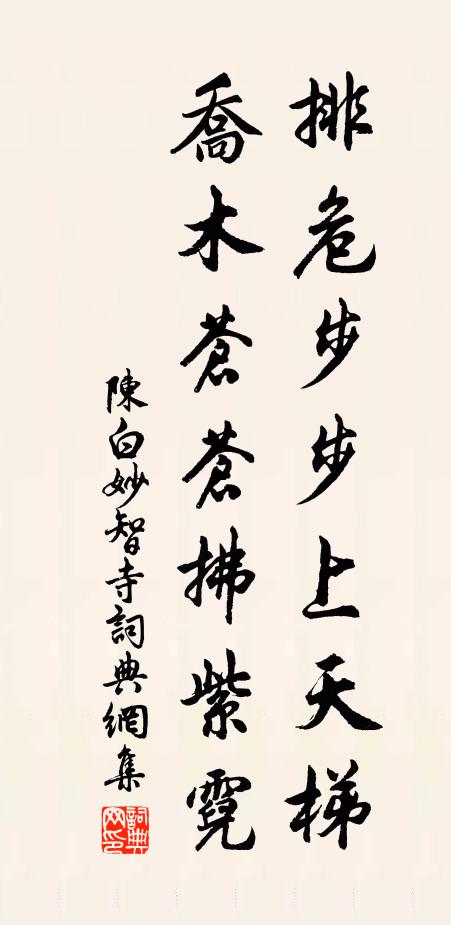 排危步步上天梯
喬木蒼蒼拂紫霓
陳白妙智寺詞典網集
詞典網印